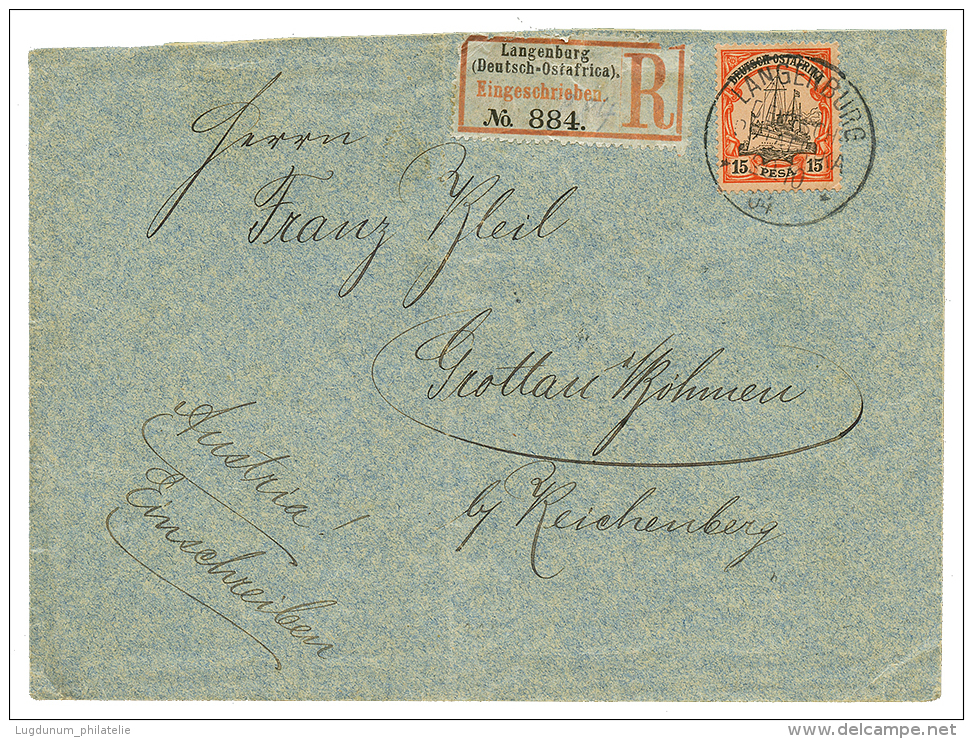 Langenburg
(Deutsch-Ostafrica).
Eingeschrieben.
No. 884.
R
DEUTSCH-OSTAFRIKA
15 PESA 15
LANGENBURG
10
04
Herrn
Franz Kleil
Grottau i/Böhmen
by Reichenberg
Austria!
Einschreiben
Lugdunum_philatelie
delcampe.net